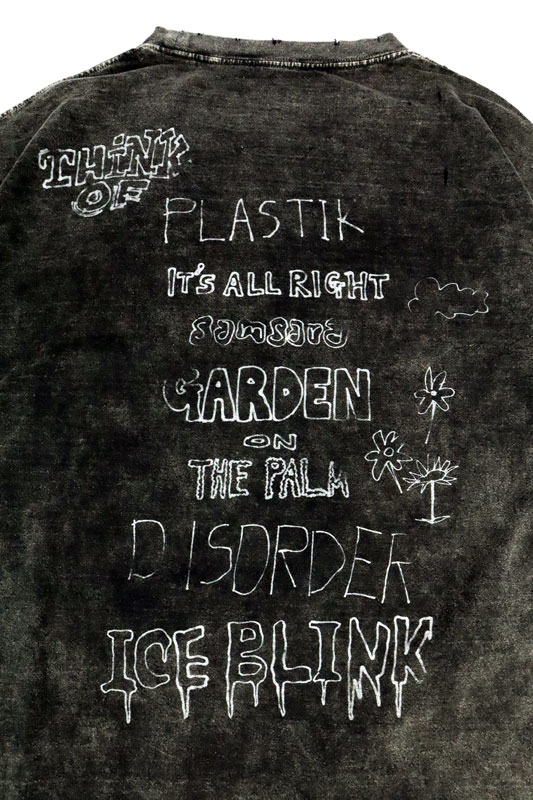 THiNK
OF
PLASTIK
IT'S ALL RIGHT
samsara
GARDEN
ON
THE PALM
DISORDER
ICE BLINK